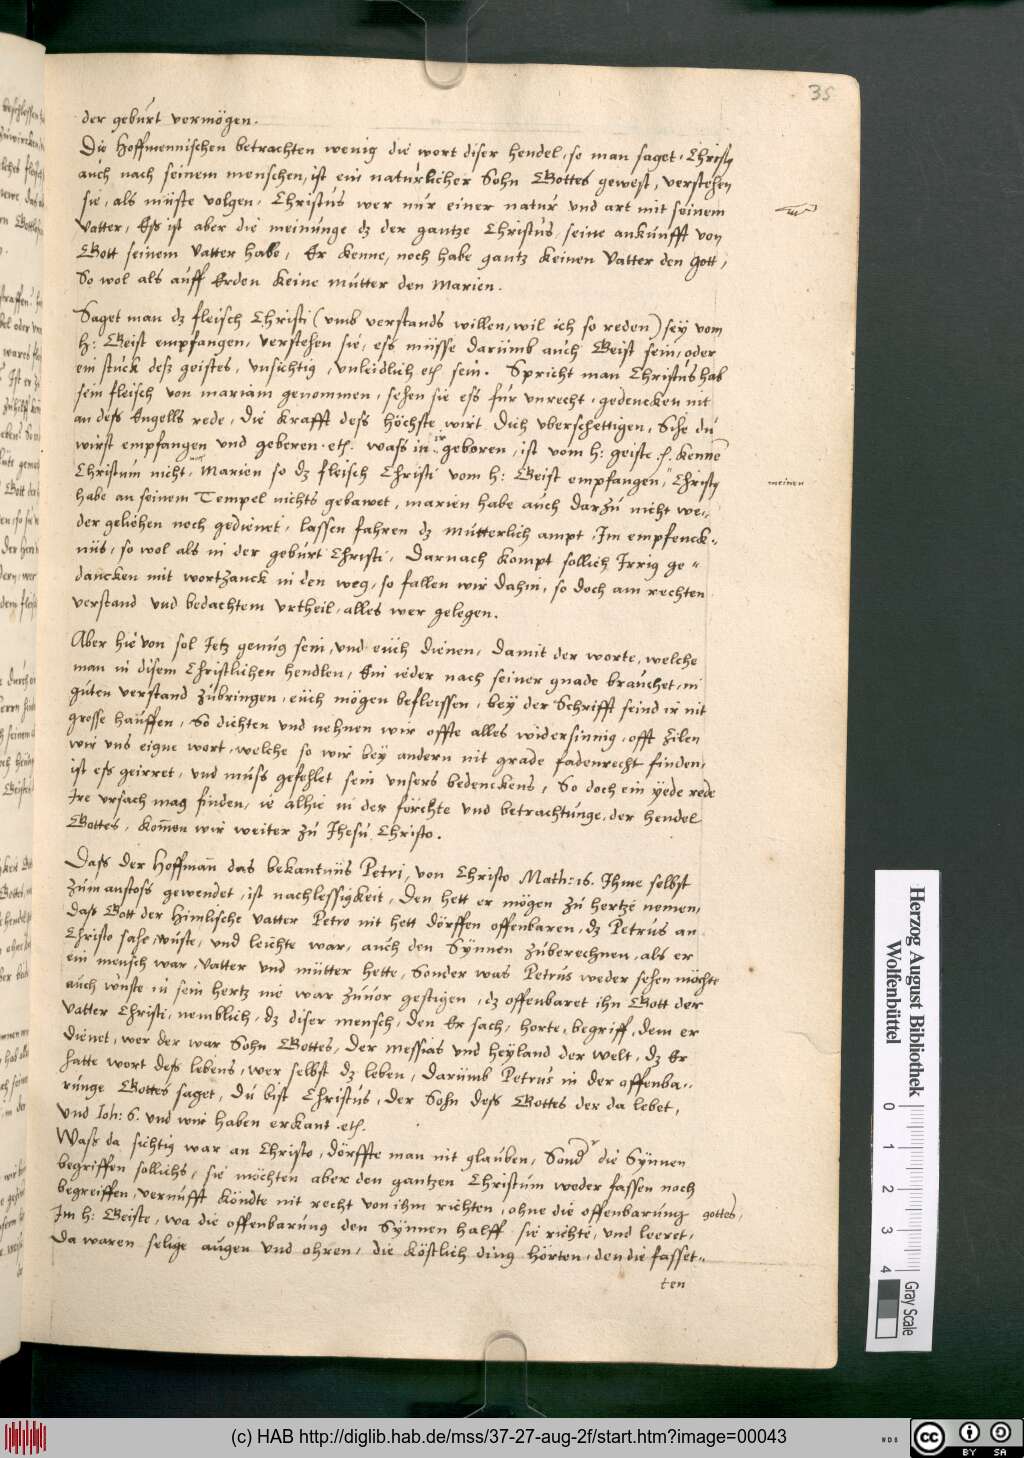 35
der geburt vermögen.
Die Hoffmennischen betrachten wenig die wort diser hendel, so man saget, Christus
auch nach seinem menschen, ist ein naturlicher Sohn Gottes gewest, verstehen
sie, als müste volgen, Christus wer nur einer natur und art mit seinem
Vatter, Eß ist aber die meinunge dz der gantze Christus, seine ankunfft von
Gott seinem Vatter habe, Er kenne, noch habe gantz keinen Vatter den Gott,
So wol als auff Erden keine mutter den Marien.
Saget man dz fleisch Christi (umb verstands willen, wil ich so reden) sey vom
h: Geist empfangen, verstehen sie, ess müsse darumb auch Geist sein, oder
ein stuck deß geistes, unsichtig, unleidlich etc. sein. Spricht man Christus hab
sein fleisch von mariam genommen, sehen sie ess fur unrecht, gedencken nit
an deß Engells rede, die krafft deß höchste wirt dich uberschettigen, Sihe du
wirst empfangen und geberen. etc. wass in ir geboren, ist vom h: geiste. etc. kennē
Christum nicht, Marien so dz fleisch Christi vom h: Geist empfangen, Christus
meinen
habe an seinem Tempel nichts gebawet, marien habe auch darzu nicht we-
der geliehen noch gedienet, lassen fahren dz mutterlich ampt, Im empfenck-
nus, so wol als in der geburt Christi, Darnach kompt sollich Irrig ge-
dancken mit wortzanck in den weg, so fallen wir dahin, so doch am rechten
verstand und bedachtem urtheil, alles wer gelegen.
Aber hie von sol Ietz genug sein, und euch dienen, damit der worte, welche
man in disem Christlichen hendlen, Ein ieder nach seiner gnade brauchet, in
guten verstand zubringen, euch mögen befleissen, bey der Schrifft seind ir nit
grosse hauffen, So dichten und nehnen wir offte alles widersinnig, offt zilen
wir uns eigne wort, welche so wir bey andern nit grade fadenrecht finden,
ist eß geirret, und muss gefehlet sein unsers bedenckens, So doch ein yede rede
Ire ursach mag finden, ie alhie in der forchte und betrachtunge, der hendel
Gottes, kom̄en wir weiter zu Ihesu Christo.
Dass der Hoffman̄ das bekantnüs Petri, von Christo Math: 16. Ihme selbst
zum anstoss gewendet, ist nachlessigkeit, Den hett er mögen zu hertzē nemen,
daß Gott der himlische vatter Petro nit hett dörffen offenbaren, dz Petrus an
Christo sahe, wuste, und leichte war, auch den Synnen zuberechnen, als er
ein mensch war, Vatter und mutter hette, Sonder was Petrus weder sehen möchte
auch wuste in sein hertz nie war zuuor gestigen, dz offenbaret ihn Gott der
Vatter Christi, nemblich, dz diser mensch, den Er sach, horte, begriff, dem er
dienet, wer der war Sohn Gottes, der messias und heyland der welt, dz Er
hatte wort deß lebens, wer selbst dz leben, darumb Petrus in der offenba-
runge Gottes saget, du bist Christus, der Sohn deß Gottes der da lebet,
und Ioh: 6. und wir haben erkant. etc.
Waß da sichtig war an Christo, dörffte man nit glauben, Sonder die Synnen
begriffen sollichs, sie möchten aber den gantzen Christum weder fassen noch
begreiffen, vernufft köndte nit recht von ihm richten, ohne die offenbarung gottes,
Im h: Geiste, wa die offenbarung den Synnen halff, sie richte, und leeret,
da waren selige augen und ohren, die köstlich ding hörten, den die fasset-
ten
Herzog August Bibliothek
Wolfenbüttel
0 1 2 3 4
Gray Scale
(c) HAB http://diglib.hab.de/mss/37-27-aug-2f/start.htm?image=00043
WDB
cc BY SA